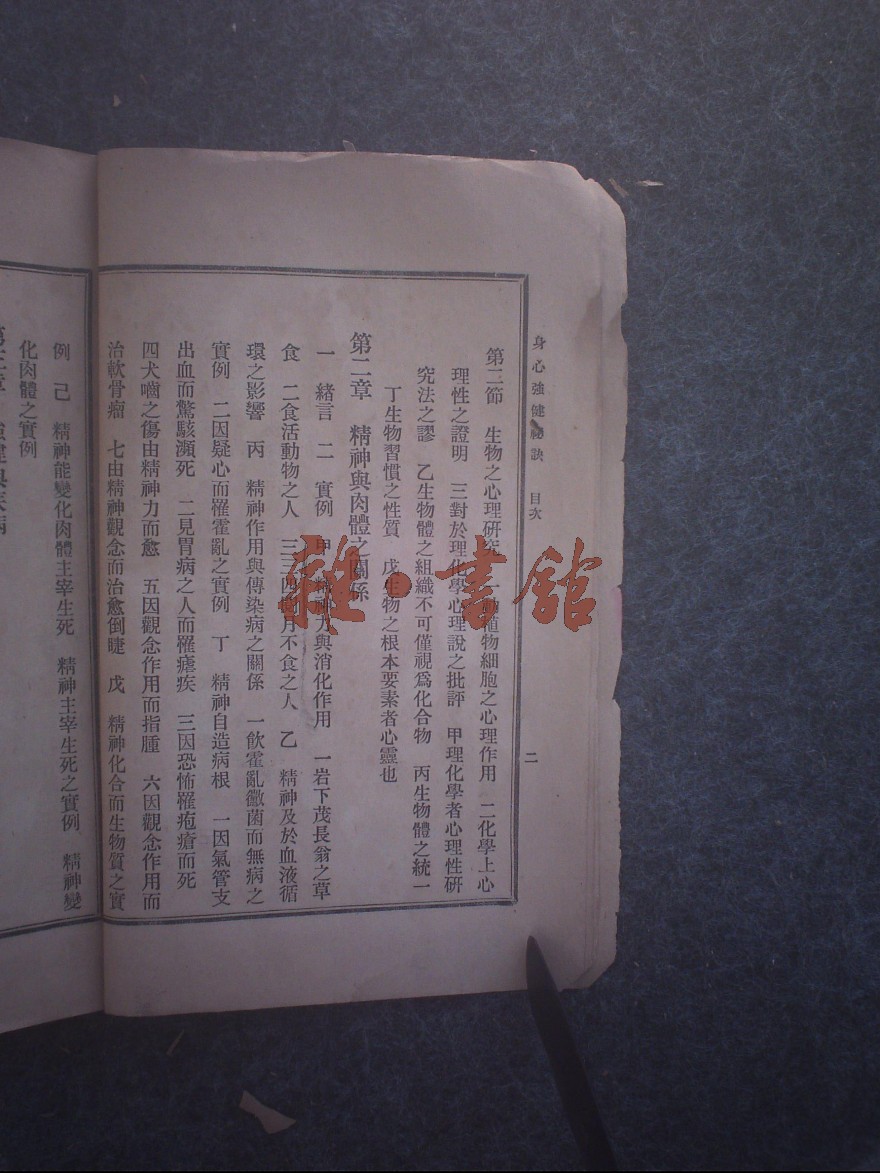 身心強健祕訣 目次
二
第二節 生物之心理研究 一動植物細胞之心理作用 二化學上心
理性之證明 三對於理化學心理說之批評 甲理化學者心理性研
究法之謬 乙生物體之組織不可僅視爲化合物 丙生物體之統一
丁生物習慣之性質 戊生物之根本要素者心靈也
第二章 精神與肉體之關係
一 緒言 二 實例 甲 精神力與消化作用 一岩下茂長翁之草
食 二食活動物之人 三三四閱月不食之人 乙 精神及於血液循
環之影響 丙 精神作用與傳染病之關係 一飲霍亂黴菌而無病之
實例 二因疑心而罹霍亂之實例 丁 精神自造病根 一因氣管支
出血而驚駭瀕死 二見胃病之人而罹瘧疾 三因恐怖罹疱瘡而死
四犬嚙之傷由精神力而愈 五因觀念作用而指腫 六因觀念作用而
治軟骨瘤 七由精神觀念而治愈倒睫 戊 精神化合而生物質之實
例 己 精神能變化肉體主宰生死 精神主宰生死之實例 精神變
化肉體之實例
雜·書館